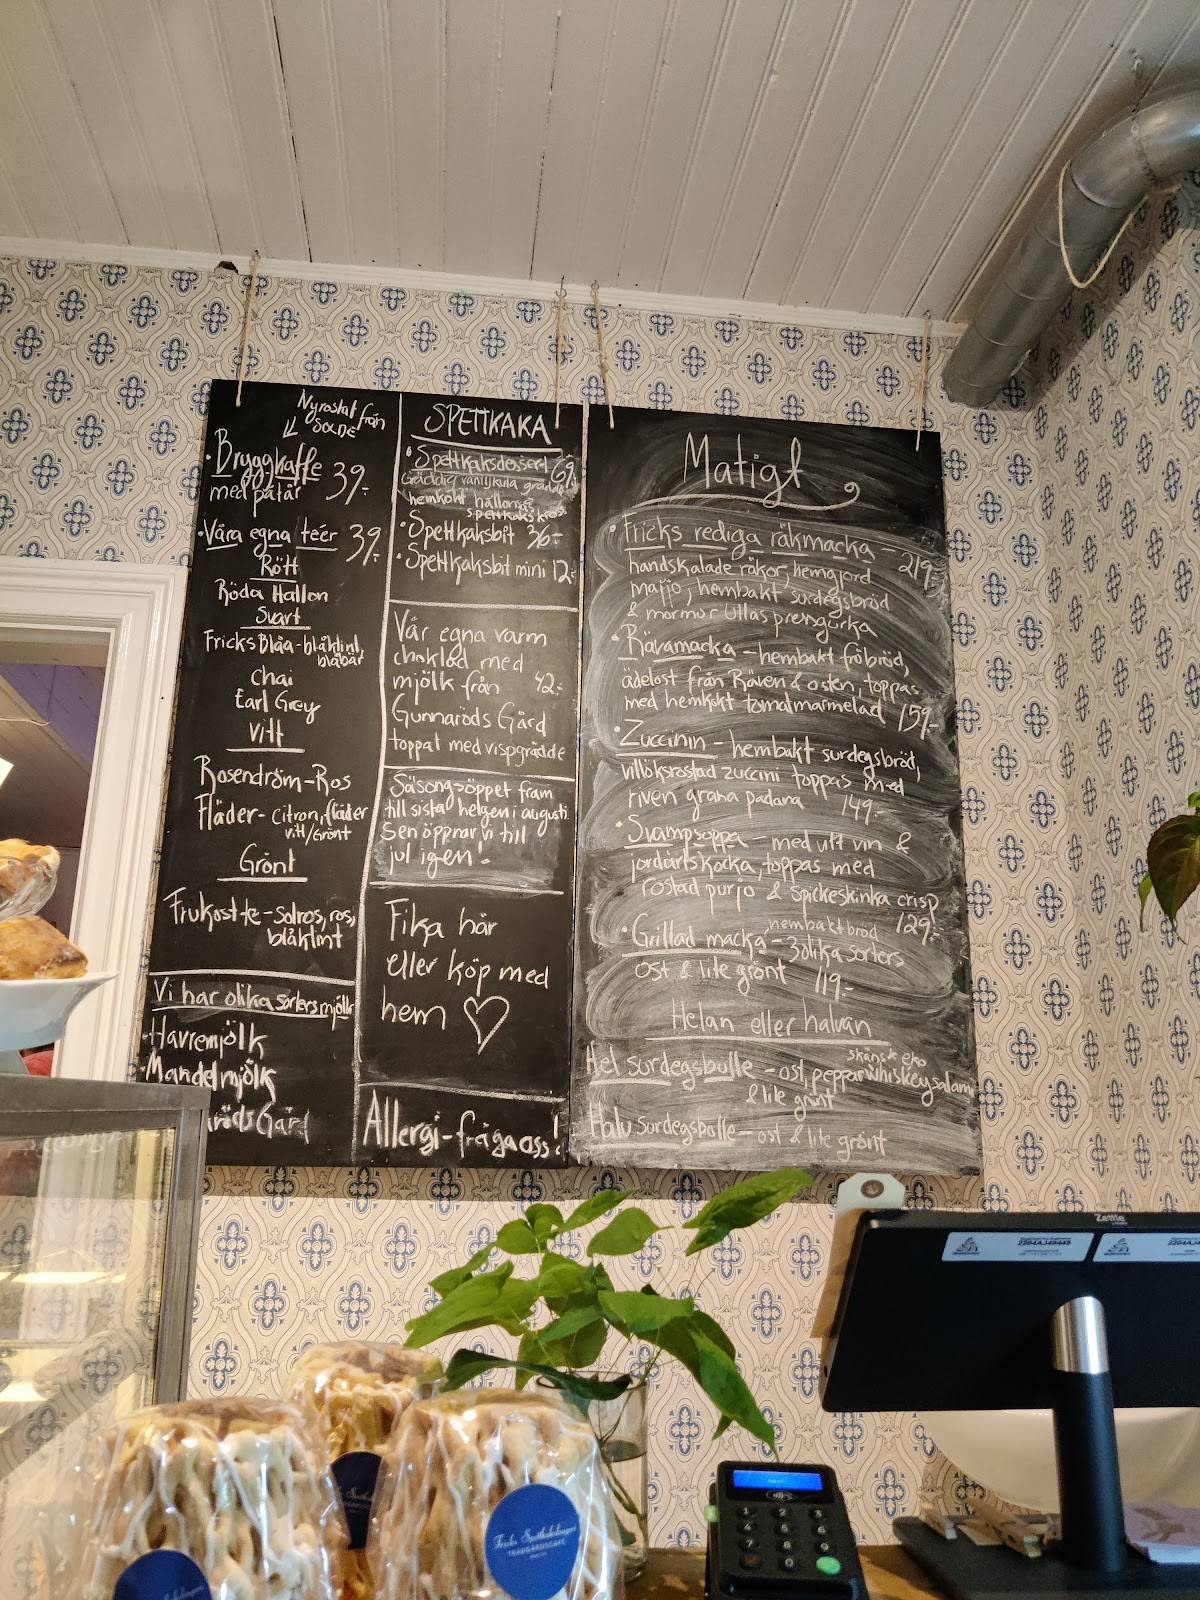 Nyrostat från
Bryggkaffe
med påtår 39:-
• Våra egna teér 39:-
Rött
Röda Hallon
Svart
Fricks Blåa - blåklint,
blåbär
Chai
Earl Grey
Vitt
Rosendröm - Ros
Fläder - Citron, fläder
vitt/Grönt
Grönt
Frukostte - Solros, ros,
blåklint
Vi har olika sorters mjölk
Havremjölk
Mandelmjölk
Gård
SPETTKAKA
• Spettkaksdessert 69:-
Gräddig vaniljkula
hemkokt hallon
spettkakskross
• Spettkaksbit 36:-
• Spettkaksbit mini 12:-
Vår egna varm
choklad med
mjölk från 42:-
Gunnaröds Gård
toppat med vispgrädde
Säsongsöppet fram
till sista helgen i augusti.
Sen öppnar vi till
jul igen!
Fika här
eller köp med
hem ♡
Allergi - fråga oss!
Matigt
• Fricks rediga räkmacka - 219:-
handskalade räkor, hemgjord
majjo, hembakt surdegsbröd
& mormor Ullas pressgurka
• Rävamacka - hembakt fröbröd,
ädelost från Räven & osten, toppas
med hemkokt tomatmarmelad 159:-
• Zuccinin - hembakt surdegsbröd,
villöksrostad zuccini toppas med
riven grana padana 149:-
• Svampsoppa - med vitt vin &
jordärtskocka, toppas med
rostad purjo & spickeskinka crisp
hembakt bröd 129:-
• Grillad macka - 3 olika sorters
ost & lite grönt 119:-
Helan eller halvan
skånsk eko
Hel surdegsbulle - ost, pepparwhiskeysalami
& lite grönt
Halv surdegsbulle - ost & lite grönt
Zettle
TRÄDGÅRDSCAFÉ